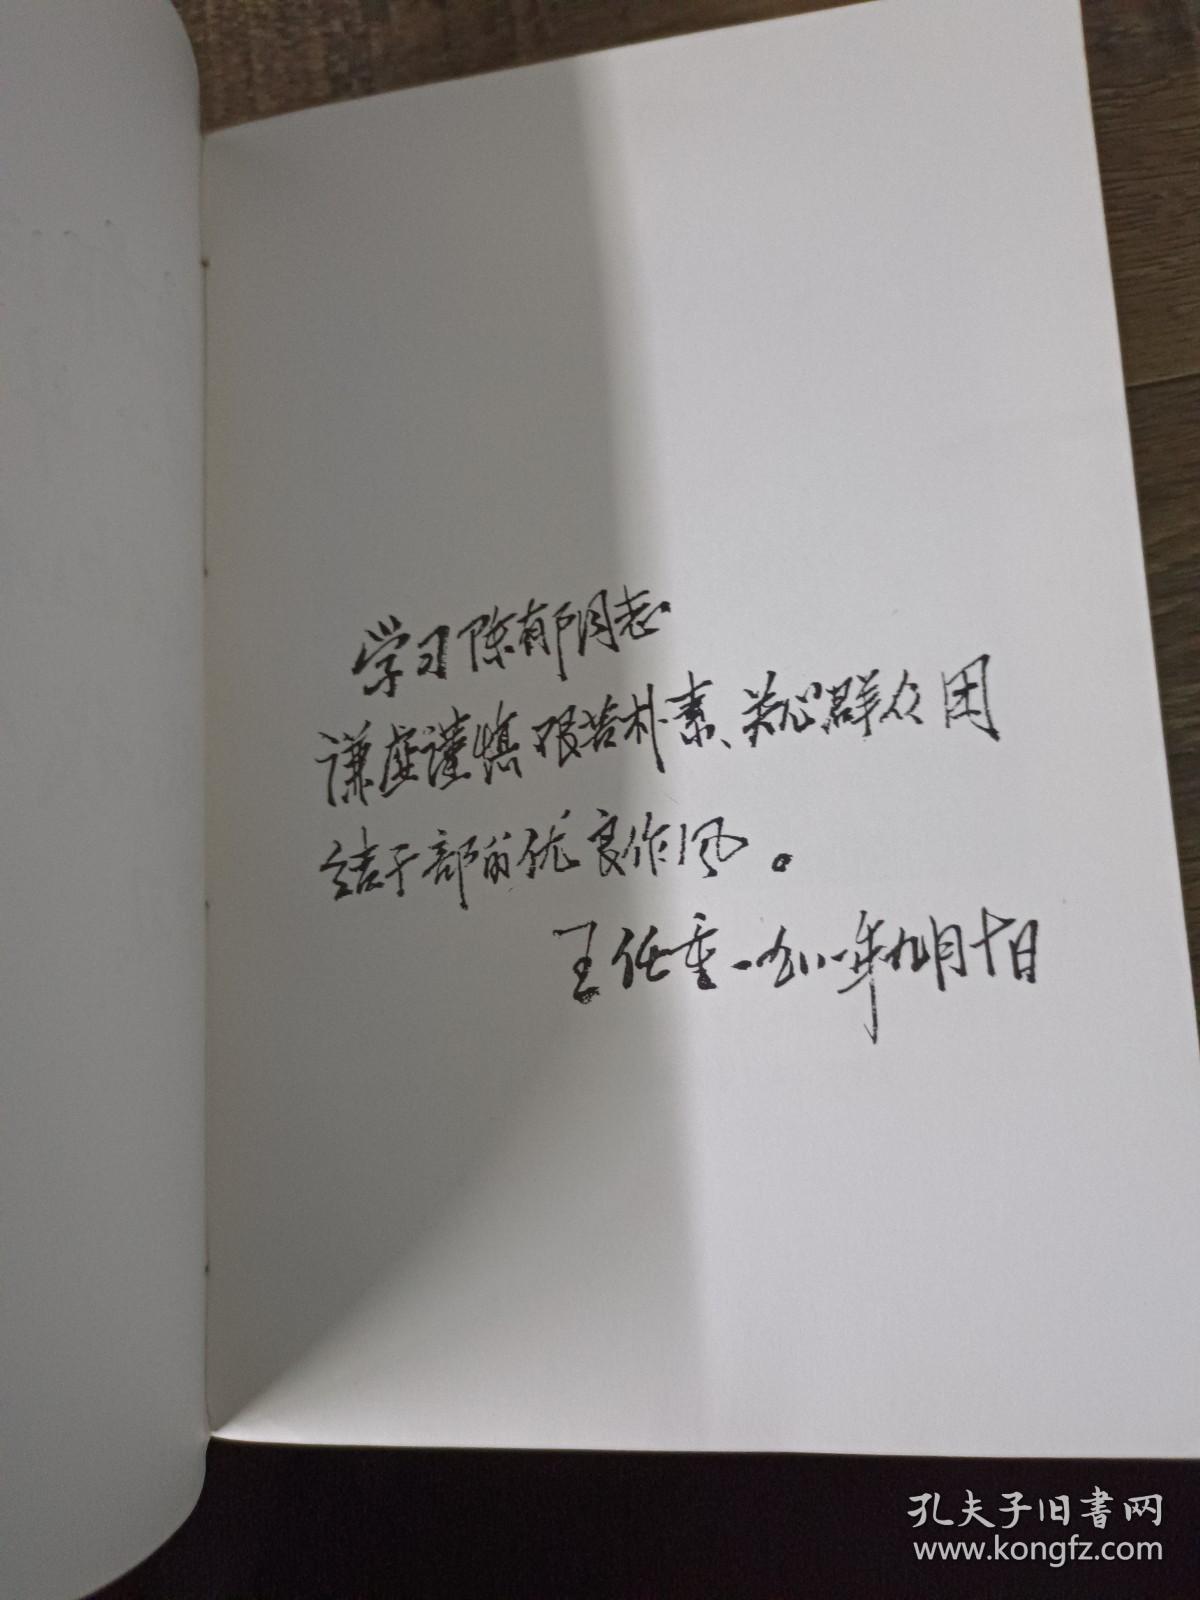 学习陈郁同志
谦虚谨慎、艰苦朴素、关心群众团
结干部的优良作风。
王任重 一九八一年九月十日
孔夫子旧书网
www.kongfz.com